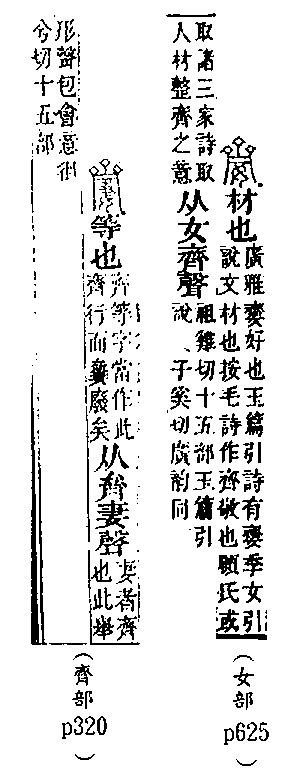 材也
廣雅好也玉篇引詩有季女引
說文材也按毛詩作齊敬也顧氏或
取諸三家詩取
人材整齊之意
从女齊聲
祖雞切十五部玉篇引
說、子奚切廣韵同
(女部)
p625
等也
齊等字當作此
齊行而䶒廢矣
从齊妻聲
妻者齊
也此舉
形聲包會意徂
兮切十五部
(齊部)
p320